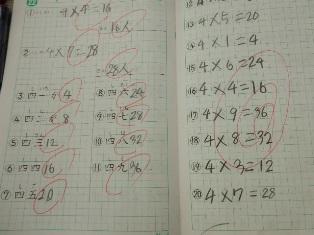 22
① 4×4=16
=16人
2 4×7=28
=28人
③ 四一 4
④ 四二 8
⑤ 四三12
⑥ 四四16
⑦ 四五20
⑧ 四六24
⑨ 四七28
⑩ 四八32
⑪ 四九36
⑬ 4×5=20
⑭ 4×1=4
⑮ 4×6=24
⑯ 4×4=16
⑰ 4×9=36
⑱ 4×8=32
⑲ 4×3=12
⑳ 4×7=28